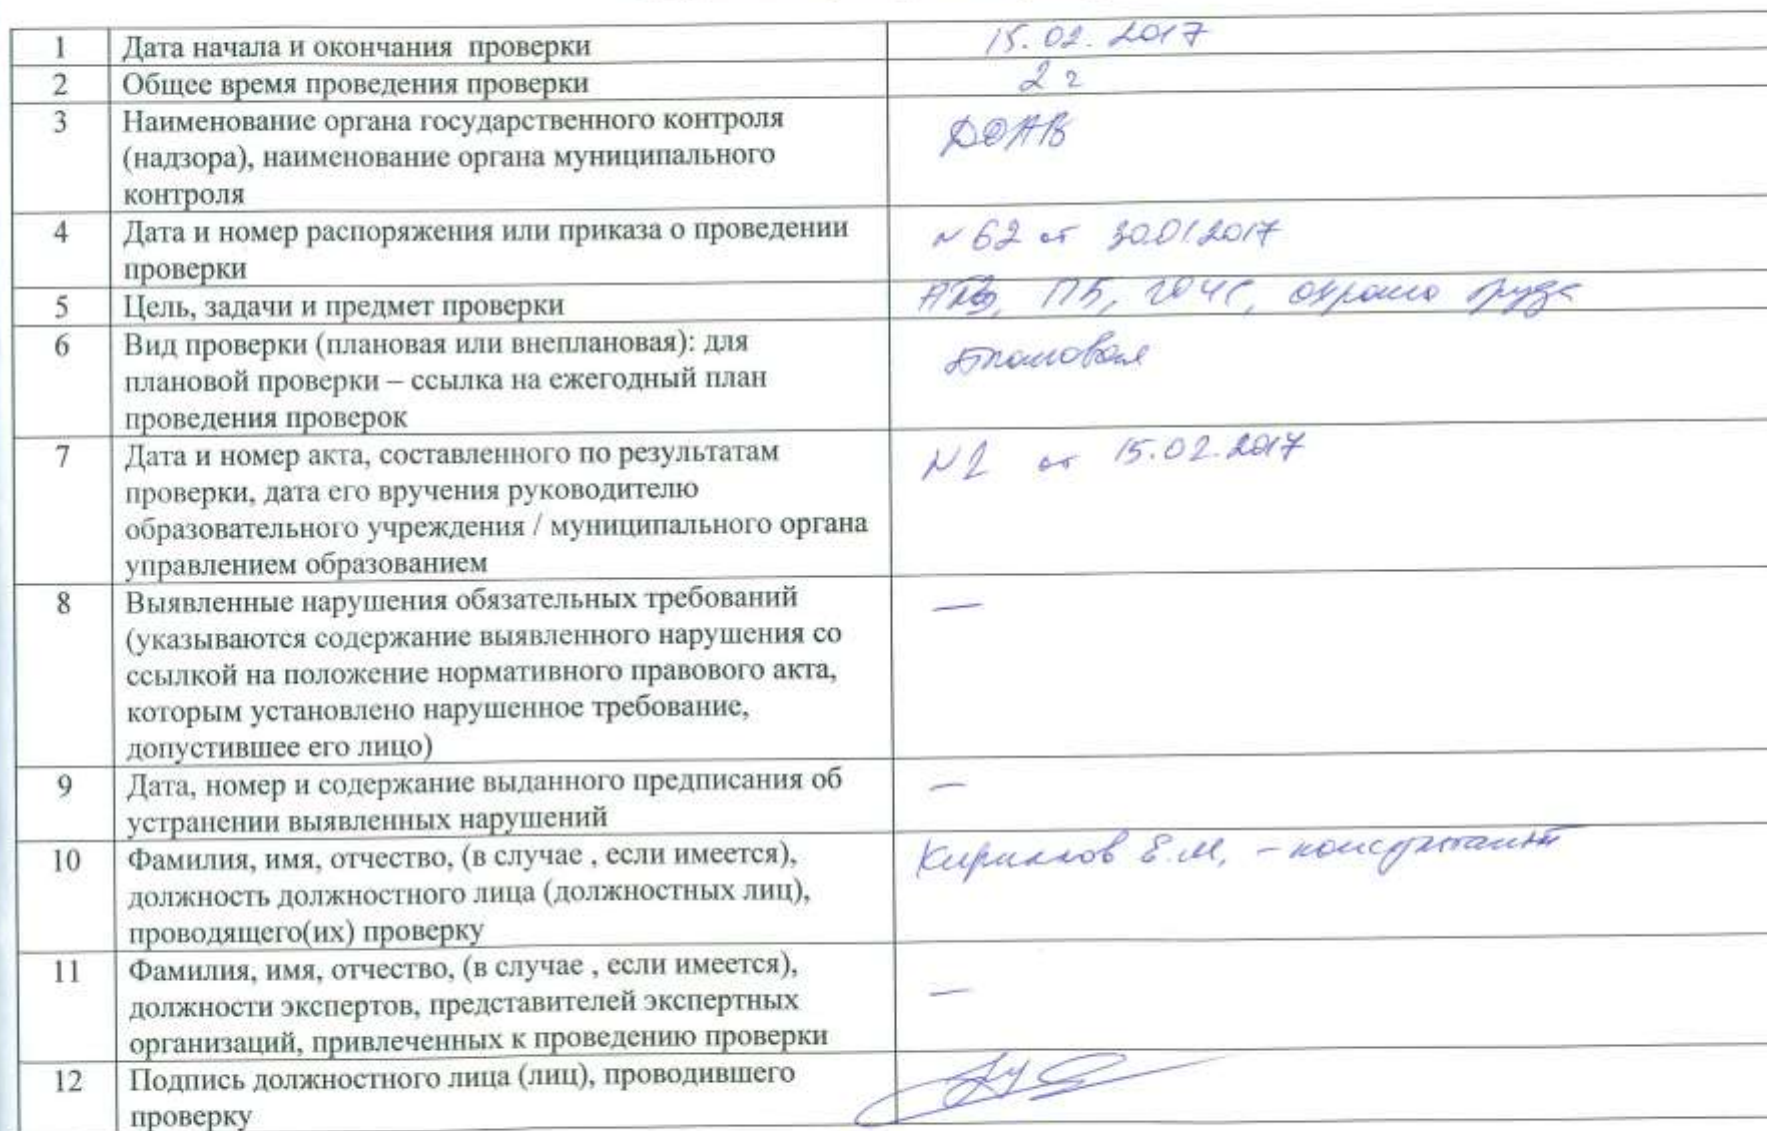 1 Дата начала и окончания проверки 15.02.2017
2 Общее время проведения проверки 2 г
3 Наименование органа государственного контроля
(надзора), наименование органа муниципального
контроля
ДОАВ
4 Дата и номер распоряжения или приказа о проведении
проверки
№ 62 от 30.01.2017
5 Цель, задачи и предмет проверки ПБ, ГОЧС, охрана труда
6 Вид проверки (плановая или внеплановая): для
плановой проверки – ссылка на ежегодный план
проведения проверок
плановая
7 Дата и номер акта, составленного по результатам
проверки, дата его вручения руководителю
образовательного учреждения / муниципального органа
управлением образованием
от 15.02.2017
8 Выявленные нарушения обязательных требований
(указываются содержание выявленного нарушения со
ссылкой на положение нормативного правового акта,
которым установлено нарушенное требование,
допустившее его лицо)
—
9 Дата, номер и содержание выданного предписания об
устранении выявленных нарушений
—
10 Фамилия, имя, отчество, (в случае , если имеется),
должность должностного лица (должностных лиц),
проводящего(их) проверку
Кириллов Е.М. - консультант
11 Фамилия, имя, отчество, (в случае , если имеется),
должности экспертов, представителей экспертных
организаций, привлеченных к проведению проверки
—
12 Подпись должностного лица (лиц), проводившего
проверку